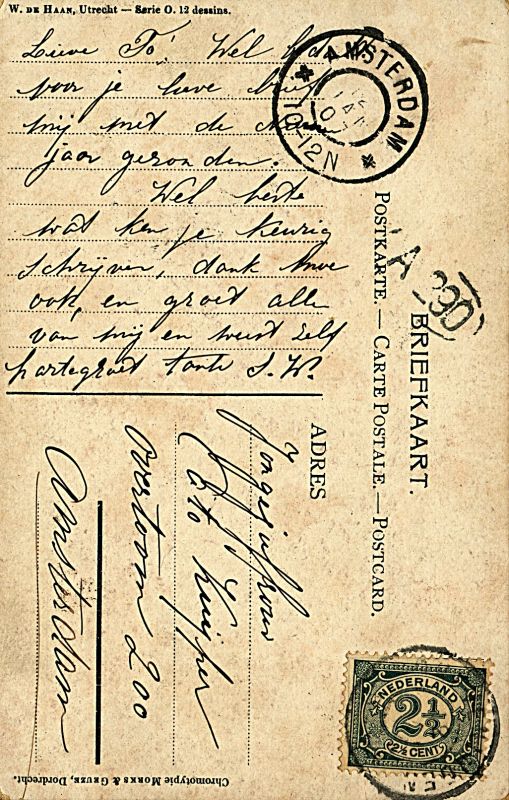 W. DE HAAN, Utrecht — Serie O. 12 dessins.
Lieve To! Wel
voor je lieve brief
mij met de
jaar gezonden.
Wel beste
wat ken je keurig
schrijven, dank
ook, en groet alle
van mij en weest zelf
hartegroet tante S. W.
AMSTERDAM
10-12N
A 230
BRIEFKAART.
POSTKARTE. — CARTE POSTALE. — POSTCARD.
ADRES
Jongejuffrouw
Cato Kuijper
Overtoom 200
Amsterdam
NEDERLAND
2½
2½ CENT
Chromotypie MORKS & GEUZE, Dordrecht.